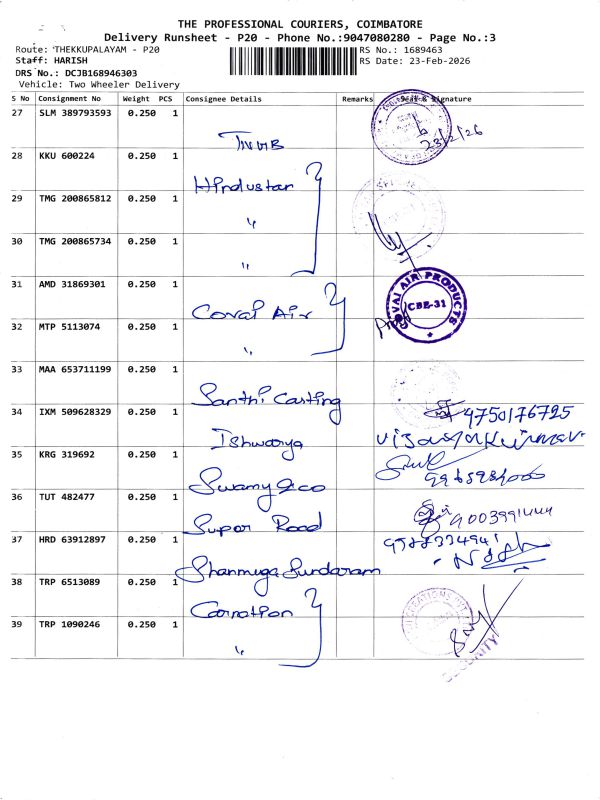 THE PROFESSIONAL COURIERS, COIMBATORE
Delivery Runsheet - P20 - Phone No.:9047080280 - Page No.:3
Route: THEKKUPALAYAM - P20
RS No.: 1689463
Staff: HARISH
RS Date: 23-Feb-2026
DRS No.: DCJB168946303
Vehicle: Two Wheeler Delivery
S No Consignment No Weight PCS Consignee Details Remarks Seal & Signature
27 SLM 389793593 0.250 1
TNVIB
23/2/26
28 KKU 600224 0.250 1
Hindustan
29 TMG 200865812 0.250 1
"
30 TMG 200865734 0.250 1
31 AMD 31869301 0.250 1
Covai Air
COVAI AIR PRODUCTS
CBE-31
32 MTP 5113074 0.250 1
"
33 MAA 653711199 0.250 1
Santhi Casting
34 IXM 509628329 0.250 1
4750176725
Ishwarya
35 KRG 319692 0.250 1
Swamy &co
36 TUT 482477 0.250 1
Super Road
9003991444
37 HRD 63912897 0.250 1
Shanmuga Sundaram
38 TRP 6513089 0.250 1
Carnation
39 TRP 1090246 0.250 1
"
SECURITY